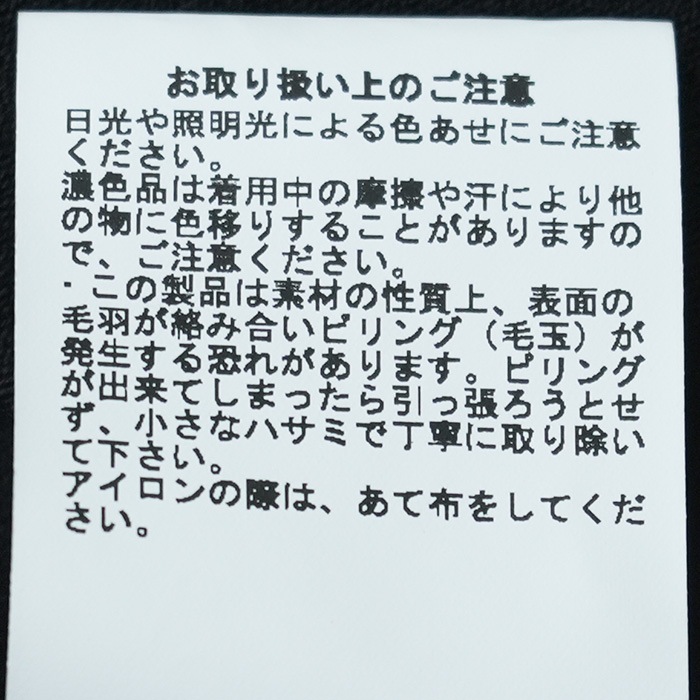 お取り扱い上のご注意
日光や照明光による色あせにご注意
ください。
濃色品は着用中の摩擦や汗により他
の物に色移りすることがありますの
で、ご注意ください。
・この製品は素材の性質上、表面の
毛羽が絡み合いピリング（毛玉）が
発生する恐れがあります。ピリング
が出来てしまったら引っ張ろうとせ
ず、小さなハサミで丁寧に取り除い
て下さい。
アイロンの際は、あて布をしてくだ
さい。